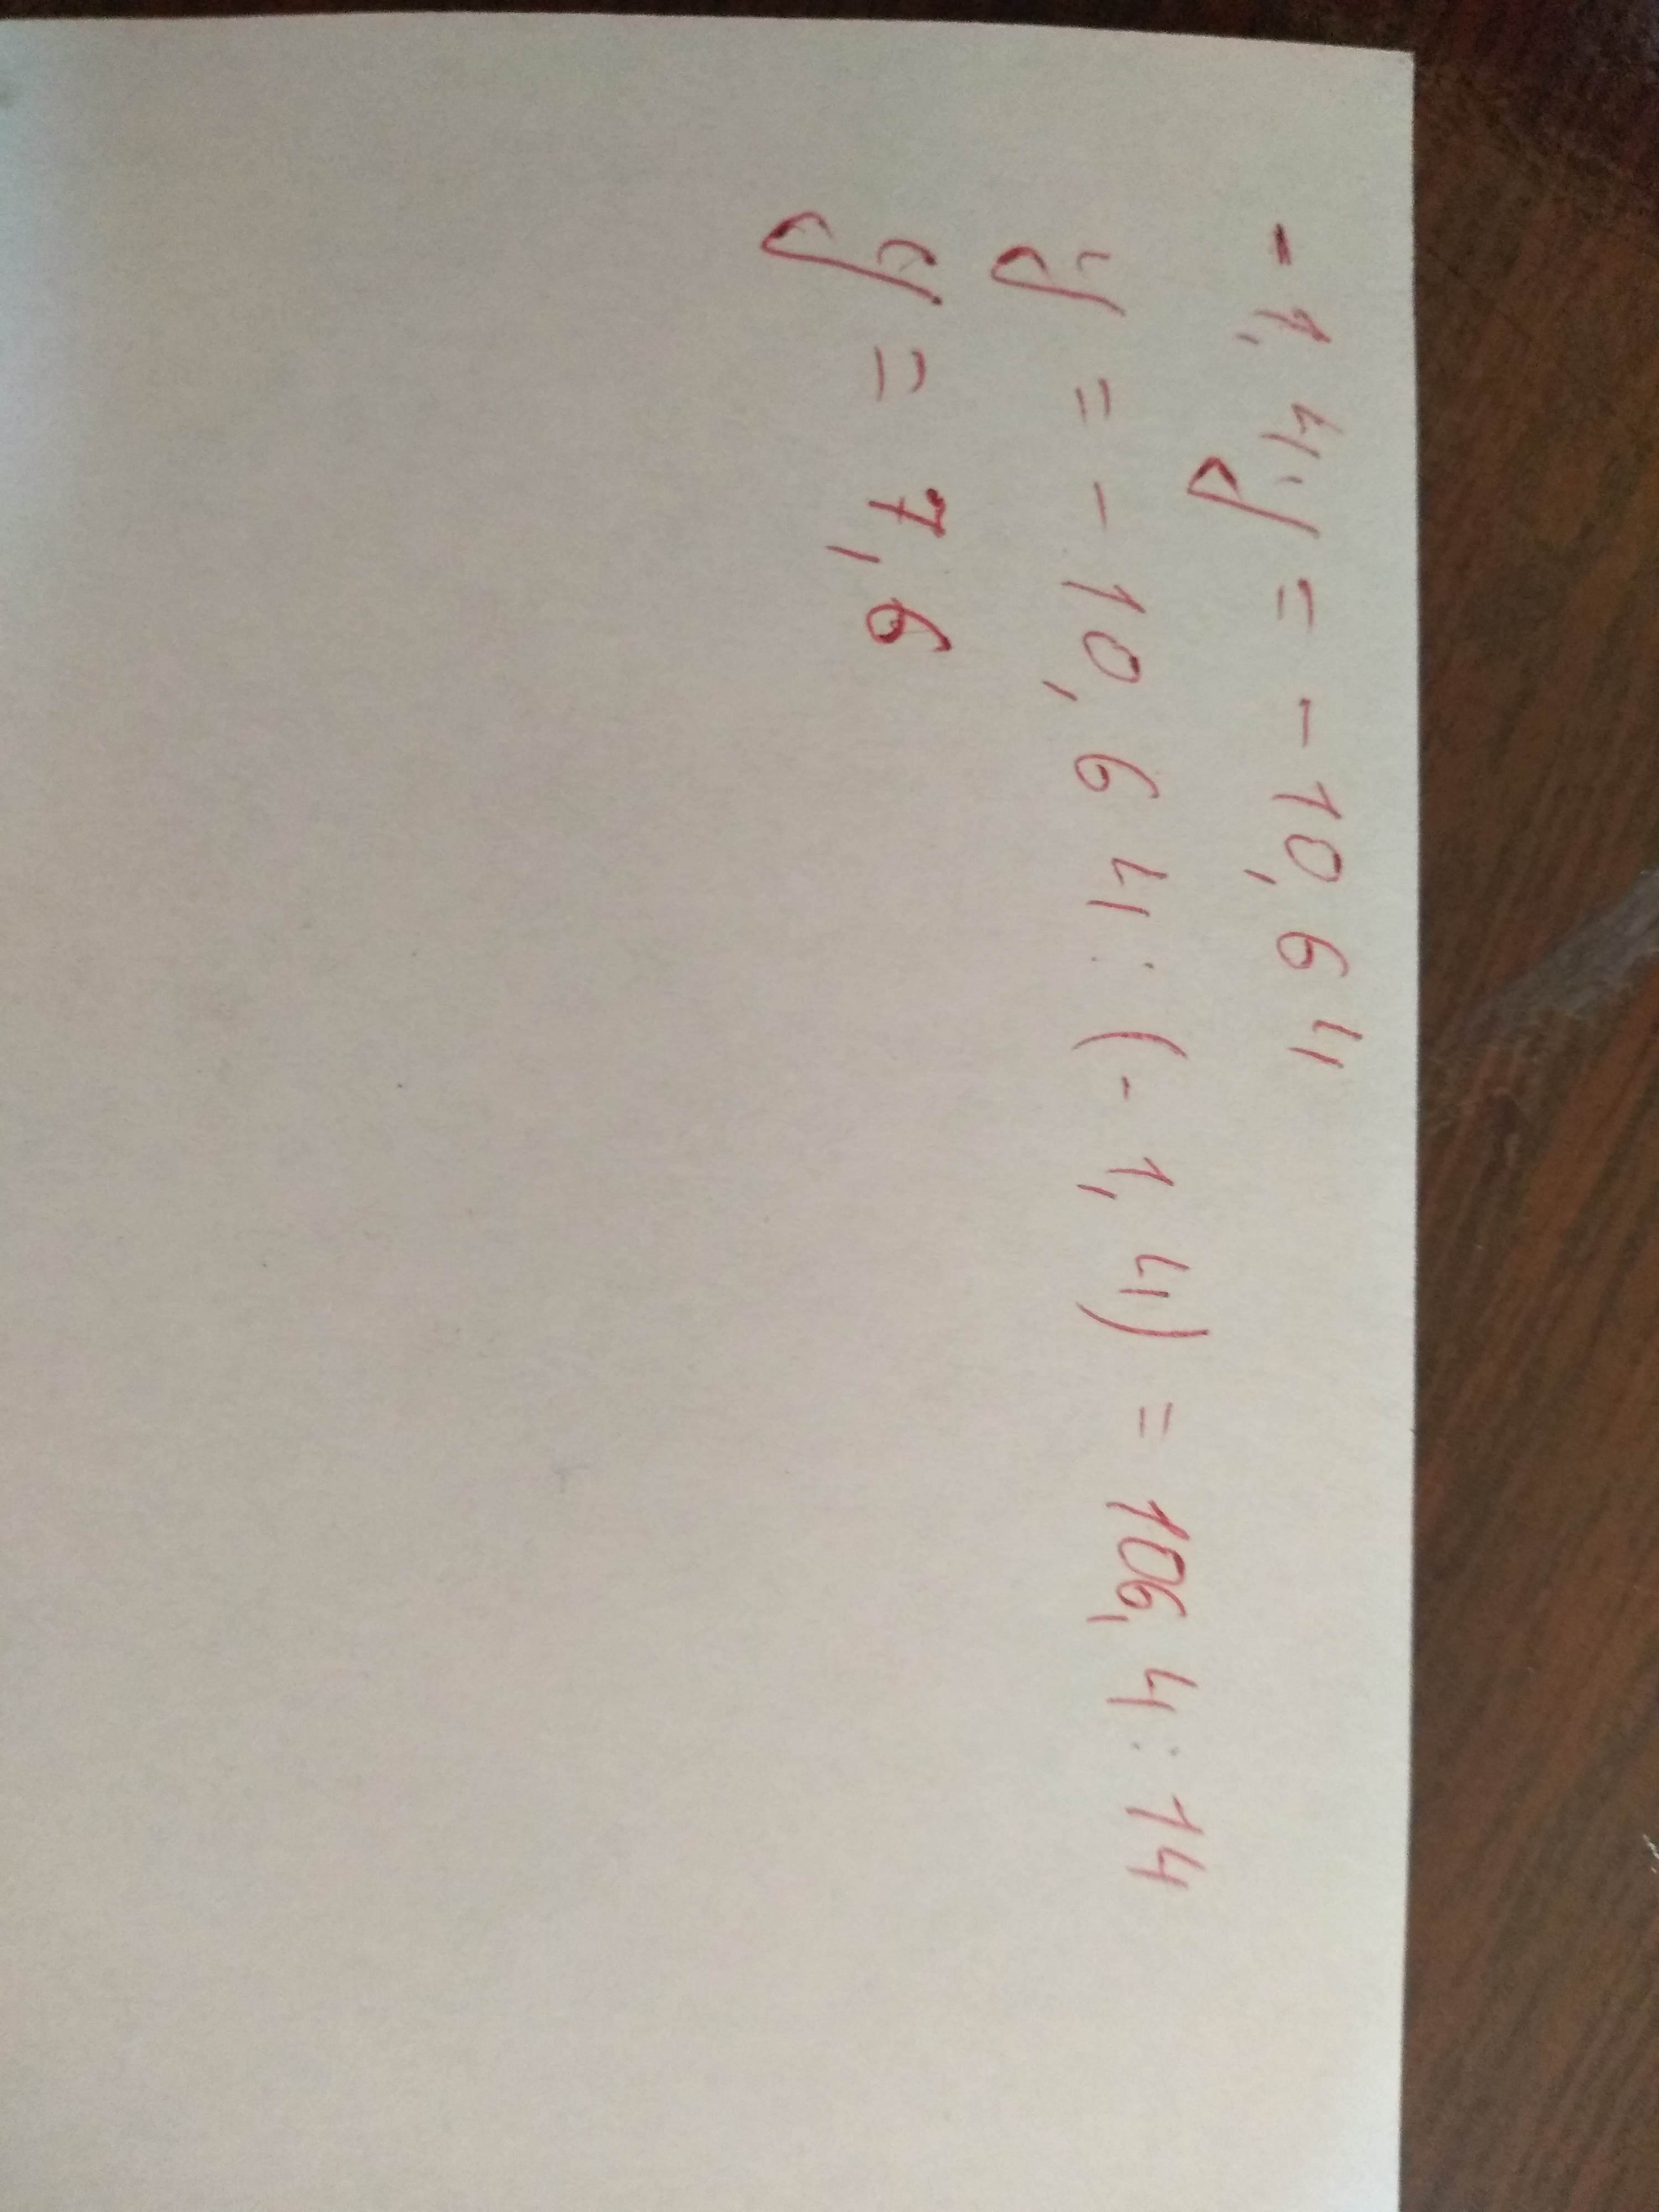 -1,4y = -10,64
y = -10,64:(-1,4) = 106,4:14
y = 7,6